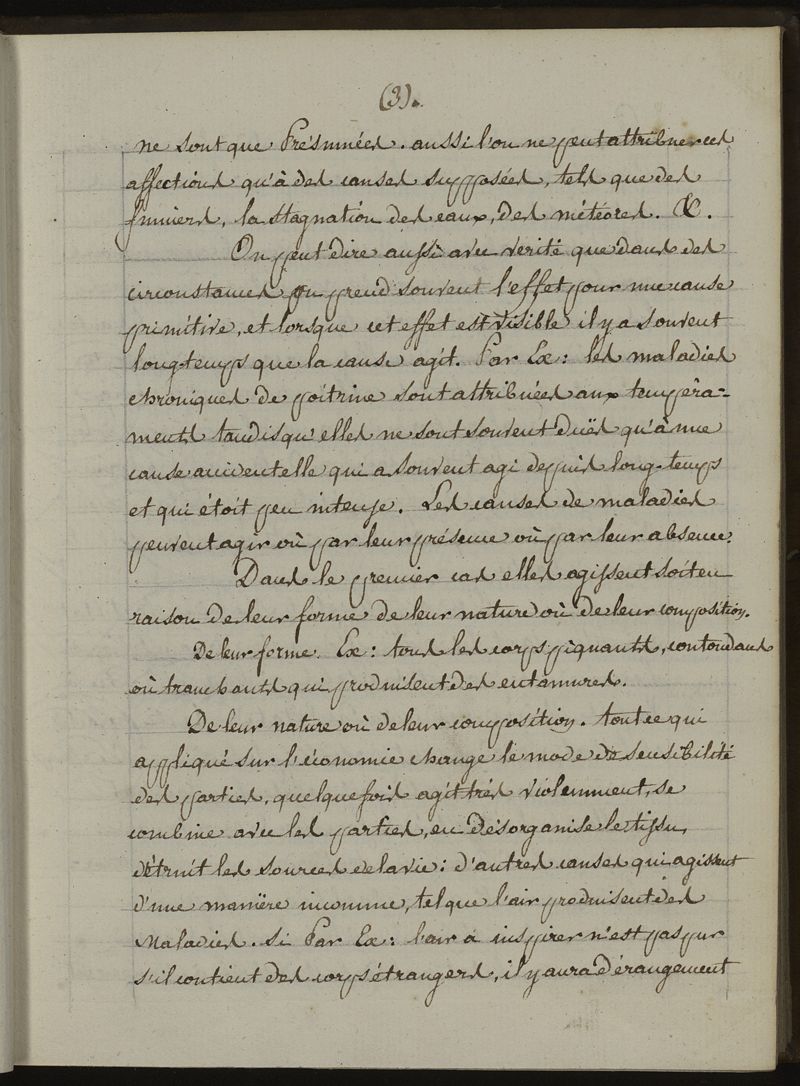 (3).
ne sont que Présumées. aussi l'on ne peut attribuer ces
affections qu'à des causes supposées, tels que des
fumiers, la stagnation des eaux, des météores. &.
On peut dire aussi avec verité que dans des
circonstances on prend souvent l'effet pour une cause
primitive, et lorsque cet effet est visible il y a souvent
long-temps que la cause agit. Par Ex: les maladies
chroniques de poitrine sont attribuées aux tempéra=
ments tandis qu'elles ne sont souvent duës qu'à une
cause accidentelle qui a souvent agi depuis long-temps
et qui étoit peu intense. Les causes de maladies
peuvent agir où par leur présence où par leur absence.
Dans le premier cas elles agissent soit en
raison de leur forme de leur nature où de leur composition.
De leur forme. Ex: tous les corps piquants, contondans
où tranchants qui produisent des entamures.
De leur nature où de leur composition. tout ce qui
appliqué sur l'économie change le mode de sensibilité
des parties, quelquefois agit très violemment, se
combine avec les parties, en désorganise le tissu,
détruit les sources de la vie: d'autres causes qui agissent
d'une manière inconnue, tel que l'air produisent des
Maladies. Si Par Ex: l'air à inspirer n'est pas pur
s'il contient des corps étrangers, il y aura dérangement